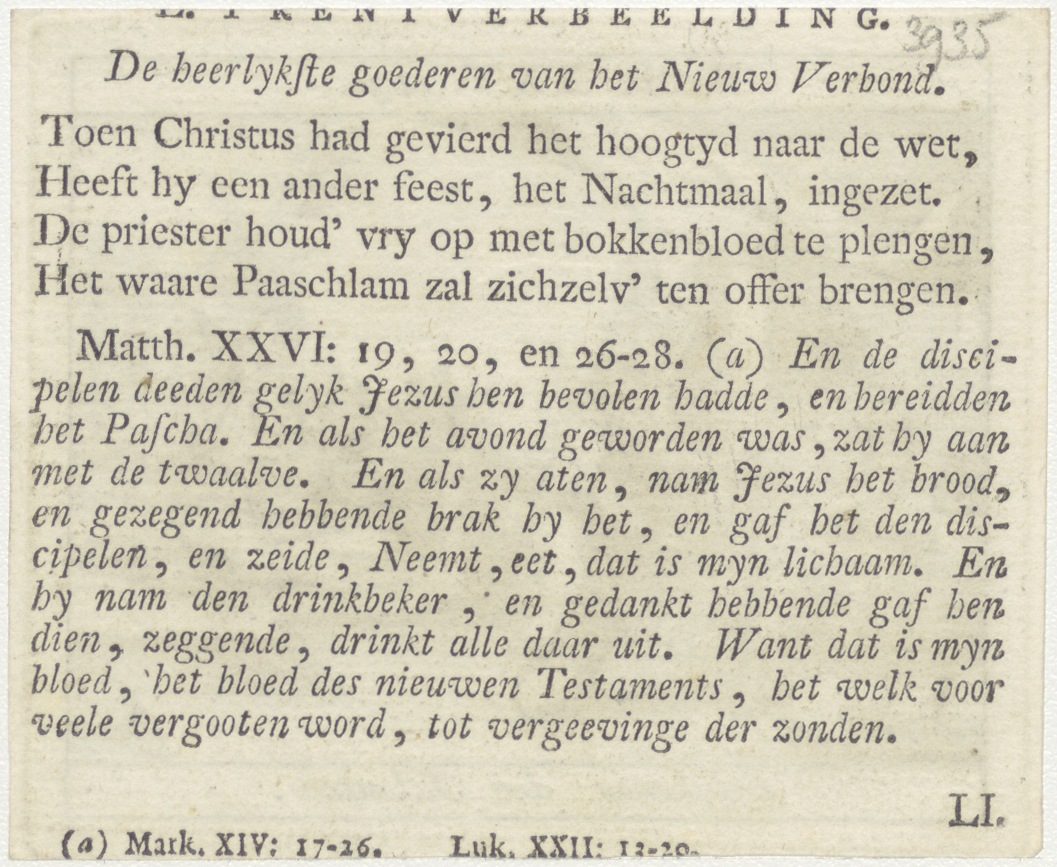 L. PRENTVERBEELDING.
3935
De heerlykſte goederen van het Nieuw Verbond.
Toen Christus had gevierd het hoogtyd naar de wet,
Heeft hy een ander feest, het Nachtmaal, ingezet.
De priester houd’ vry op met bokkenbloed te plengen,
Het waare Paaschlam zal zichzelv’ ten offer brengen.
Matth. XXVI: 19, 20, en 26-28. (a) En de disci-
pelen deeden gelyk Jezus hen bevolen hadde, en bereidden
het Paſcha. En als het avond geworden was, zat hy aan
met de twaalve. En als zy aten, nam Jezus het brood,
en gezegend hebbende brak hy het, en gaf het den dis-
cipelen, en zeide, Neemt, eet, dat is myn lichaam. En
hy nam den drinkbeker, en gedankt hebbende gaf hen
dien, zeggende, drinkt alle daar uit. Want dat is myn
bloed, het bloed des nieuwen Testaments, het welk voor
veele vergooten word, tot vergeevinge der zonden.
LI.
(a) Mark. XIV: 17-26. Luk. XXII: 13-20.